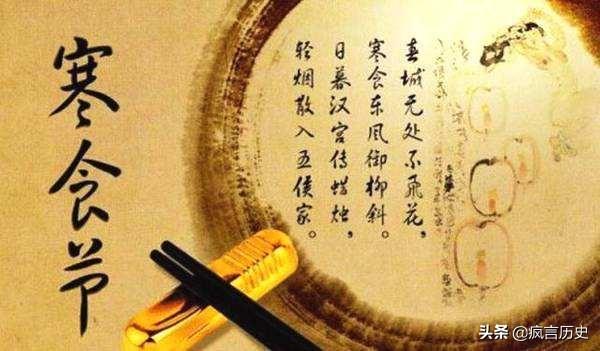 寒食节
春城无处不飞花，
寒食东风御柳斜。
日暮汉宫传蜡烛，
轻烟散入五侯家。
头条 @疯言历史